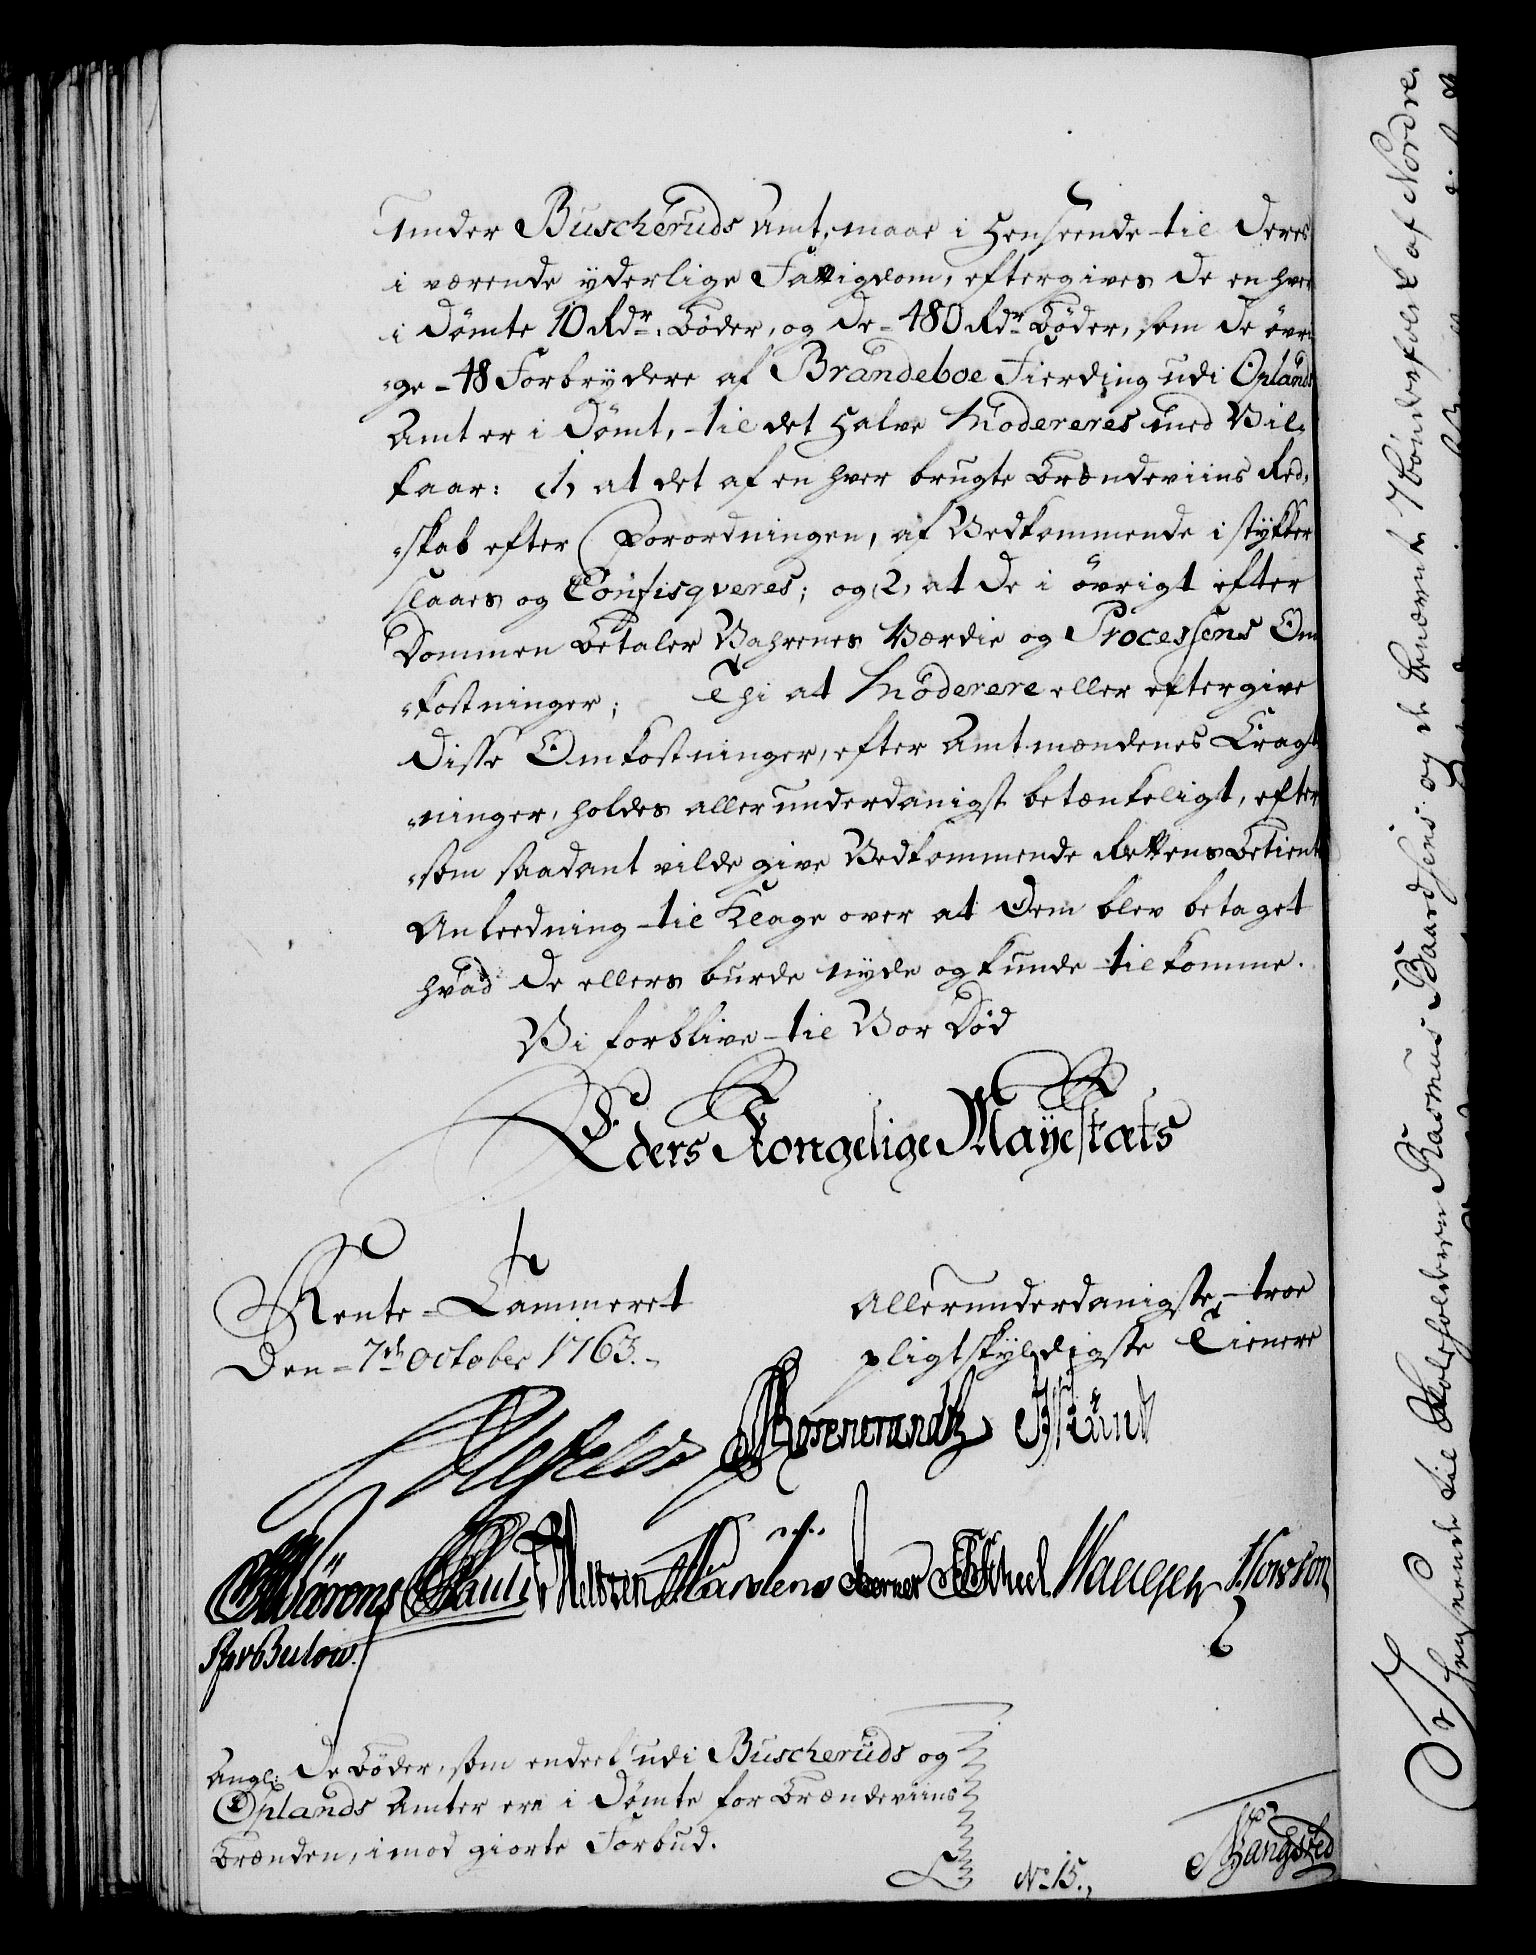 under Buscheruds Amt, maae i Henseende til deres
i værende yderlige Fattigdom, eftergives de en hver
i Dömte 10 Rdr. Böder, og de 480 Rdr. Böder, som de övri-
-ge 48 Forbrydere af Brandeboe Fierding udi Oplands
Amt er i Dömt, til det Halve Modereres med Vil-
kaar: 1, at det af en hver brugte Brændeviins Red-
-skab efter Forordningen, af Vedkommende i stykker
slaaes og Confisqveres; og 2, at de i övrigt efter
Dommen betaler Vahrenes Værdie og Processens Om
-kostninger; Thi at Moderere eller eftergive
disse Omkostninger, efter Amtmændenes Eragt
-ninger, holdes allerunderdanigst betænkeligt, efter
-som saadant vilde give Vedkommende Rettens betiente
Anleedning til Klage over at dem blev betaget
hvad de ellers burde nyde og kunde tilkomme.
Vi forblive til Vor Död
Eders Kongelige Mayestæts
Rente-Cammeret
Den 7de October 1763.
Allerunderdanigste, troe
pligtskyldigste Tienere
Rosencrandtz
Paulsen Martens Berner Scheel
Bulow.
Angl: De Böder, som endeel udi Buscheruds og
Oplands Amter ere i Dömte for Brændeviins
Brænden, imod giorte Forbud.
No 15.,
Bangsted
I Henseende til Skoleholderen Rasmus Baardsens og de benævnte 7 bondefolk af Nordre